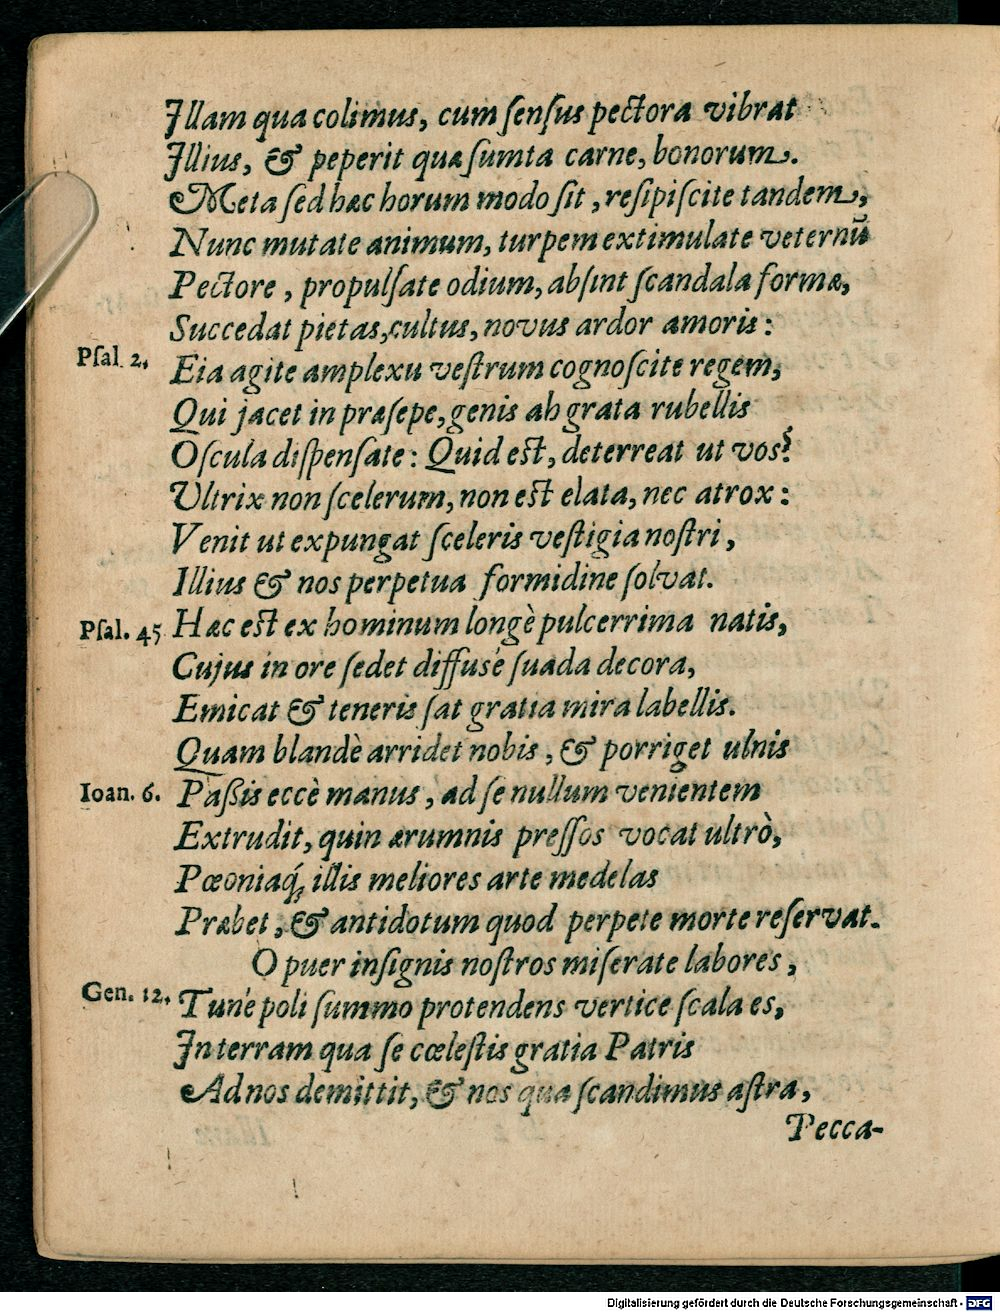 Illam qua colimus, cum ſenſus pectora vibrat
Illius, & peperit quæ ſumta carne, bonorum.
Meta ſed hæc horum modo ſit, reſipiſcite tandem,
Nunc mutate animum, turpem extimulate veternū
Pectore, propulſate odium, abſint ſcandala formæ,
Succedat pietas, cultus, novus ardor amoris:
Pſal. 2. Eia agite amplexu veſtrum cognoſcite regem,
Qui jacet in præſepe, genis ah grata rubellis
Oſcula diſpenſate: Quid eſt, deterreat ut vos?
Ultrix non ſcelerum, non eſt elata, nec atrox:
Venit ut expungat ſceleris veſtigia noſtri,
Illius & nos perpetua formidine ſolvat.
Pſal. 45 Hæc eſt ex hominum longè pulcerrima natis,
Cujus in ore ſedet diffusè ſuada decora,
Emicat & teneris ſat gratia mira labellis.
Quam blandè arridet nobis, & porriget ulnis
Ioan. 6. Paſsis eccè manus, ad ſe nullum venientem
Extrudit, quin ærumnis preſſos vocat ultrò,
Pœoniaq́; illis meliores arte medelas
Præbet, & antidotum quod perpete morte reſervat.
O puer inſignis noſtros miſerate labores,
Gen. 12. Tunè poli ſummo protendens vertice ſcala es,
In terram qua ſe cœleſtis gratia Patris
Ad nos demittit, & nos qua ſcandimus aſtra,
Pecca-
Digitalisierung gefördert durch die Deutsche Forschungsgemeinschaft - DFG